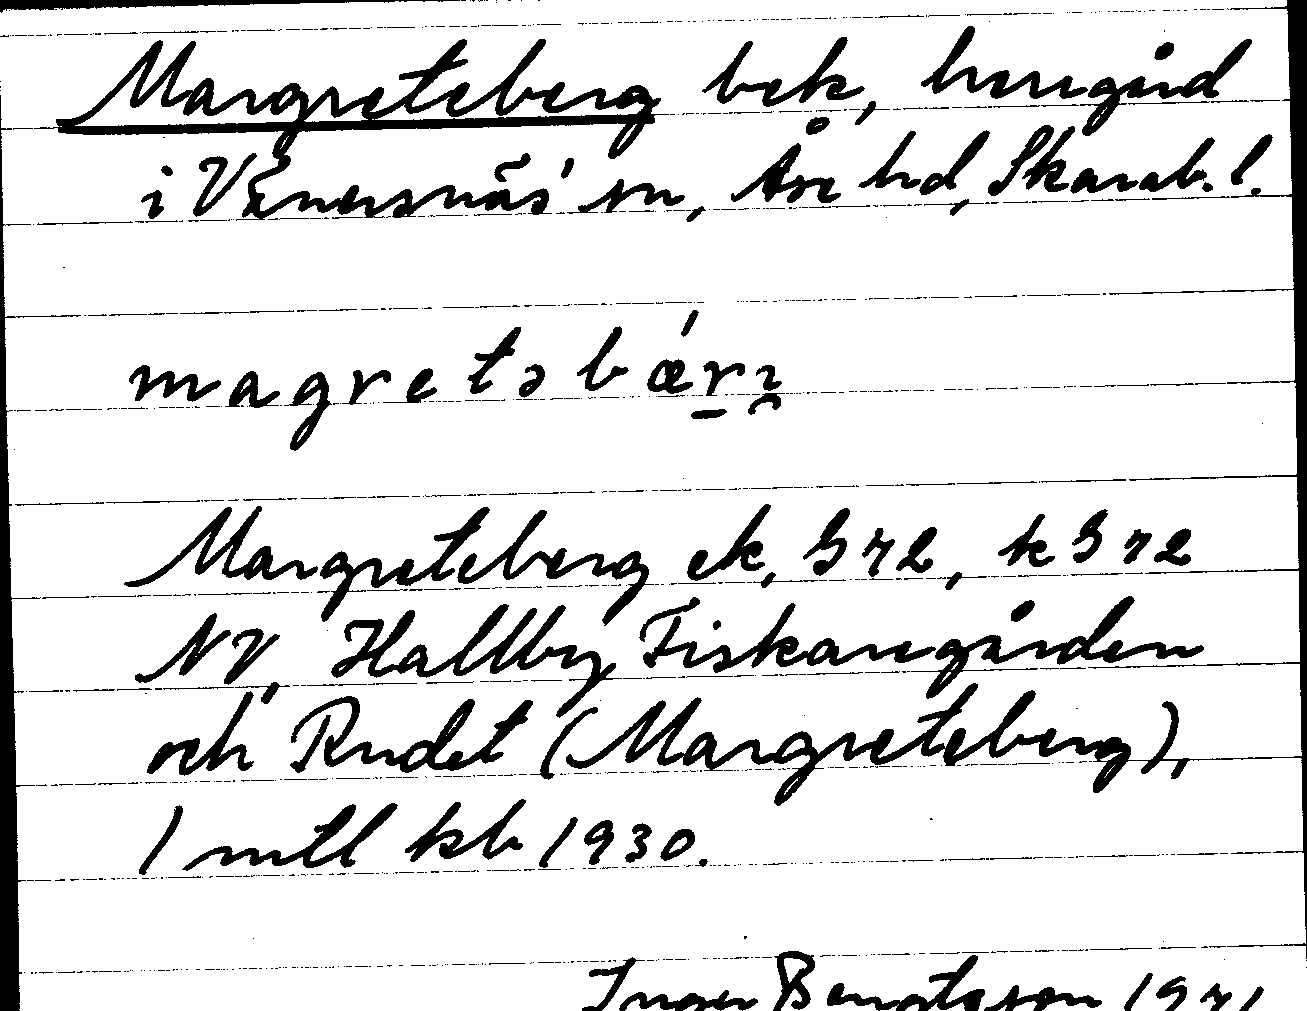 Margreteberg bek, herregård
i Vänersnäs' sn, Åse hd, Skarab. l.
magretəbǽrɪ
Margreteberg ek, G 72, k G 72
NV, Hallby Fiskaregården
och Rudet (Margreteberg),
1 mtl kb 1930.
Inger Bengtsson 1971